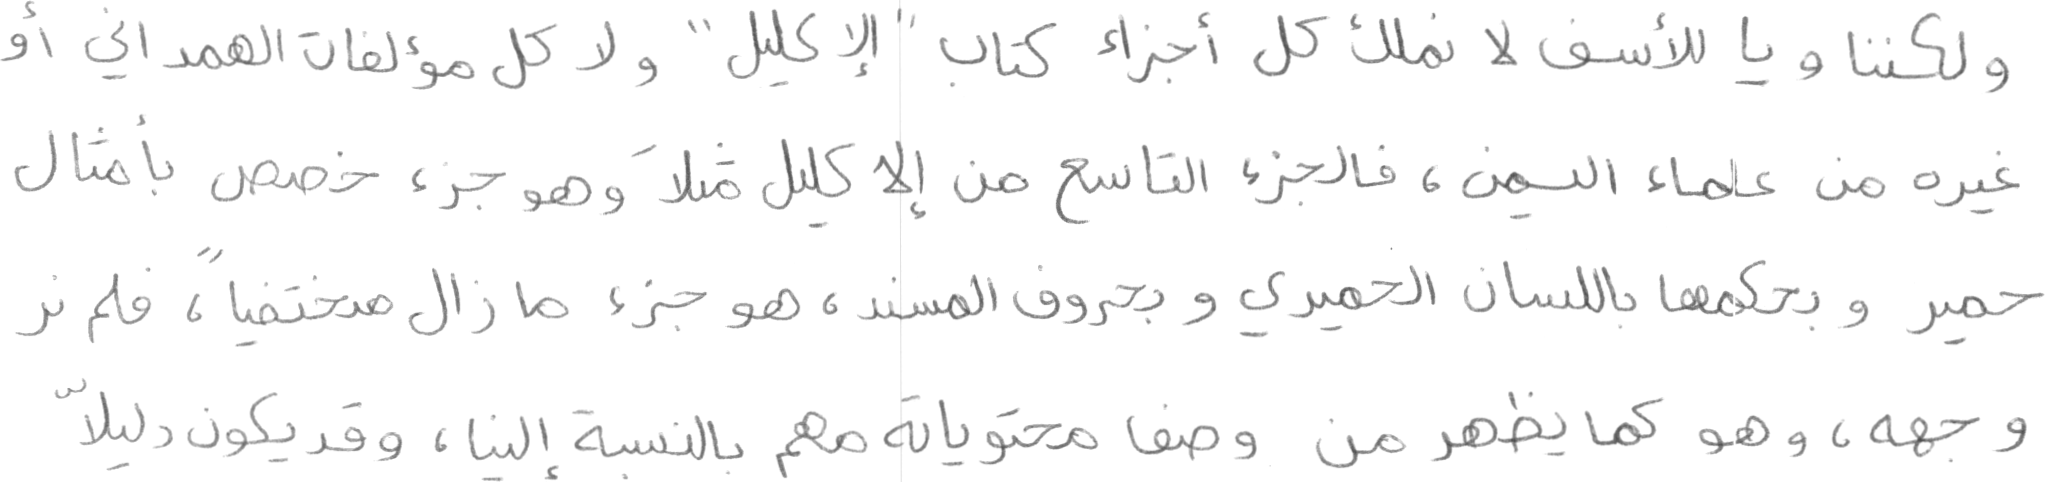 ولكننا ويا للأسف لا نملك كل أجزاء كتاب "إلا كليل" ولا كل مؤلفات الهمداني أو
غيره من علماء اليمن، فالجزء التاسع من إلا كليل مثلاً وهو جزء خصص بأمثال
حمير وبحكمها باللسان الحميري وبحروف المسند، هو جزء ما زال مختفياً، فلم نر
وجهه، وهو كما يظهر من وصفا محتوياته مهم بالنسبة إلينا، وقد يكون دليلاً